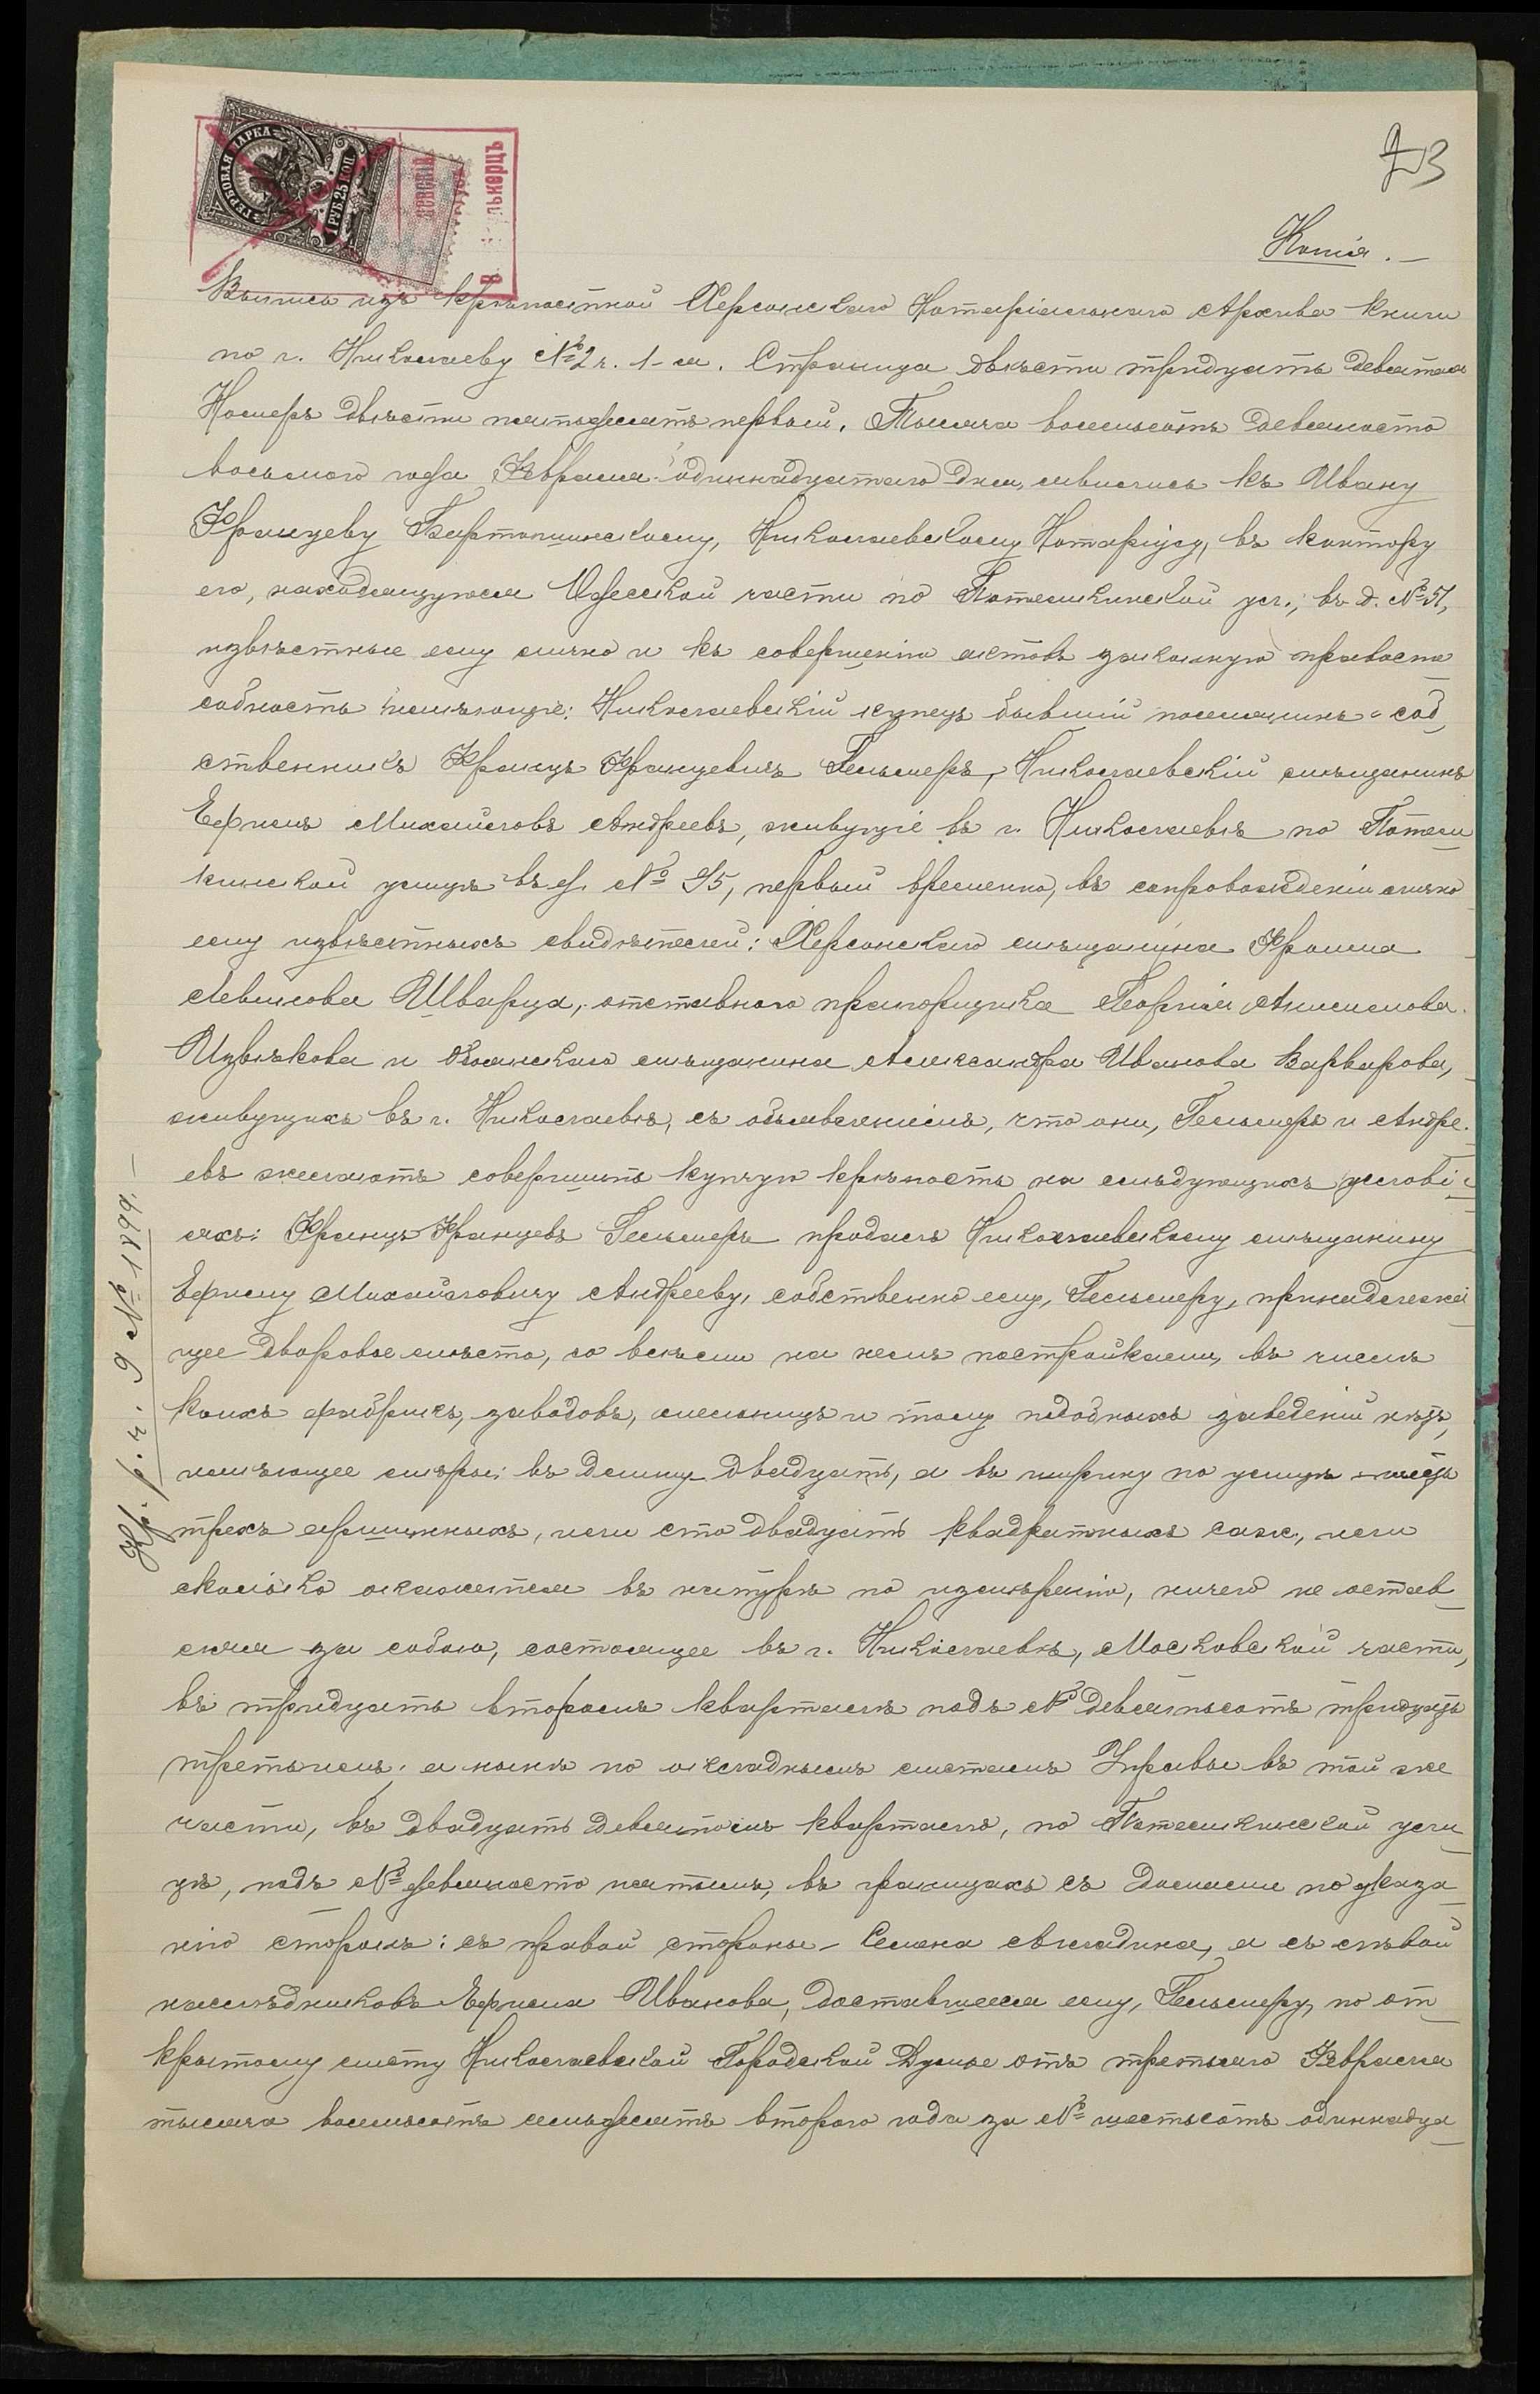 ГЕРБОВАЯ МАРКА
1 РУБ. 25 КОП.
Копія. –
Выпись изъ крѣпостной Херсонскаго Нотаріальнаго Архива книги
по г. Николаеву № 2 ч. 1-я. Страница двѣсти тридцать девятая
Номеръ двѣсти пятьдесятъ первый. Тысяча восемьсотъ девяносто
восьмого года Февраля одиннадцатаго дня, явились къ Ивану
Францеву Бартошинскому, Николаевскому Нотаріусу, въ контору
его, находящуюся Одесской части по Потемкинской ул., въ д. № 51,
извѣстные ему лично и къ совершенію актовъ законную правоспо
собность имѣющіе: Николаевскій купецъ бывшій поселянинъ-соб
ственникъ Францъ Францевичъ Гельмеръ, Николаевскій мѣщанинъ
Ефимъ Михайловъ Андреевъ, живущіе въ г. Николаевѣ по Потем
кинской улицѣ въ д. № 95, первый временно, въ сопровожденіи лично
ему извѣстныхъ свидѣтелей: Херсонскаго мѣщанина Фроима
Левикова Шварца, отставного прапорщика Георгія Анисимова
Извѣкова и мѣщанина Александра Иванова Варварова,
живущихъ въ г. Николаевѣ, съ объявленіемъ, что они, Гельмеръ и Андре
евъ желаютъ совершить купчую крѣпость на слѣдующихъ услові
яхъ: Францъ Францевъ Гельмеръ продалъ Николаевскому мѣщанину
Ефиму Михайловичу Андрееву, собственно ему, Гельмеру, принадлежа
щее дворовое мѣсто, со всѣми на немъ постройками, въ числѣ
коихъ фабрикъ, заводовъ, мельницъ и тому подобныхъ заведеній нѣтъ,
имѣющее мѣры: въ длину двадцать, а въ ширину по улицѣ шесть
трехъ аршинныхъ, или сто двадцать квадратныхъ саж., или
сколько окажется въ натурѣ по измѣренію, ничего не остав
ляя за собою, состоящее въ г. Николаевѣ, Московской части,
въ тридцать второмъ кварталѣ подъ № девятьсотъ тридцать
третьимъ, а нынѣ по окладнымъ листамъ Управы въ той же
части, въ двадцать девятомъ кварталѣ, по Потемкинской ули
цѣ, подъ № девяносто пятымъ, въ границахъ съ домами по указа
нію сторонъ: съ правой стороны – Семена а съ лѣвой
наслѣдниковъ Ефима Иванова, доставшееся ему, Гельмеру, по от
крытому листу Николаевской Городской Думы отъ третьяго Февраля
тысяча восемьсотъ семьдесятъ второго года за № шестьсотъ одиннадца
Кр. р. ч. 9 № 1899. –